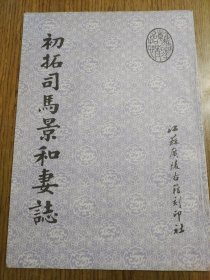 初拓司馬景和妻誌
江蘇廣陵古籍刻印社